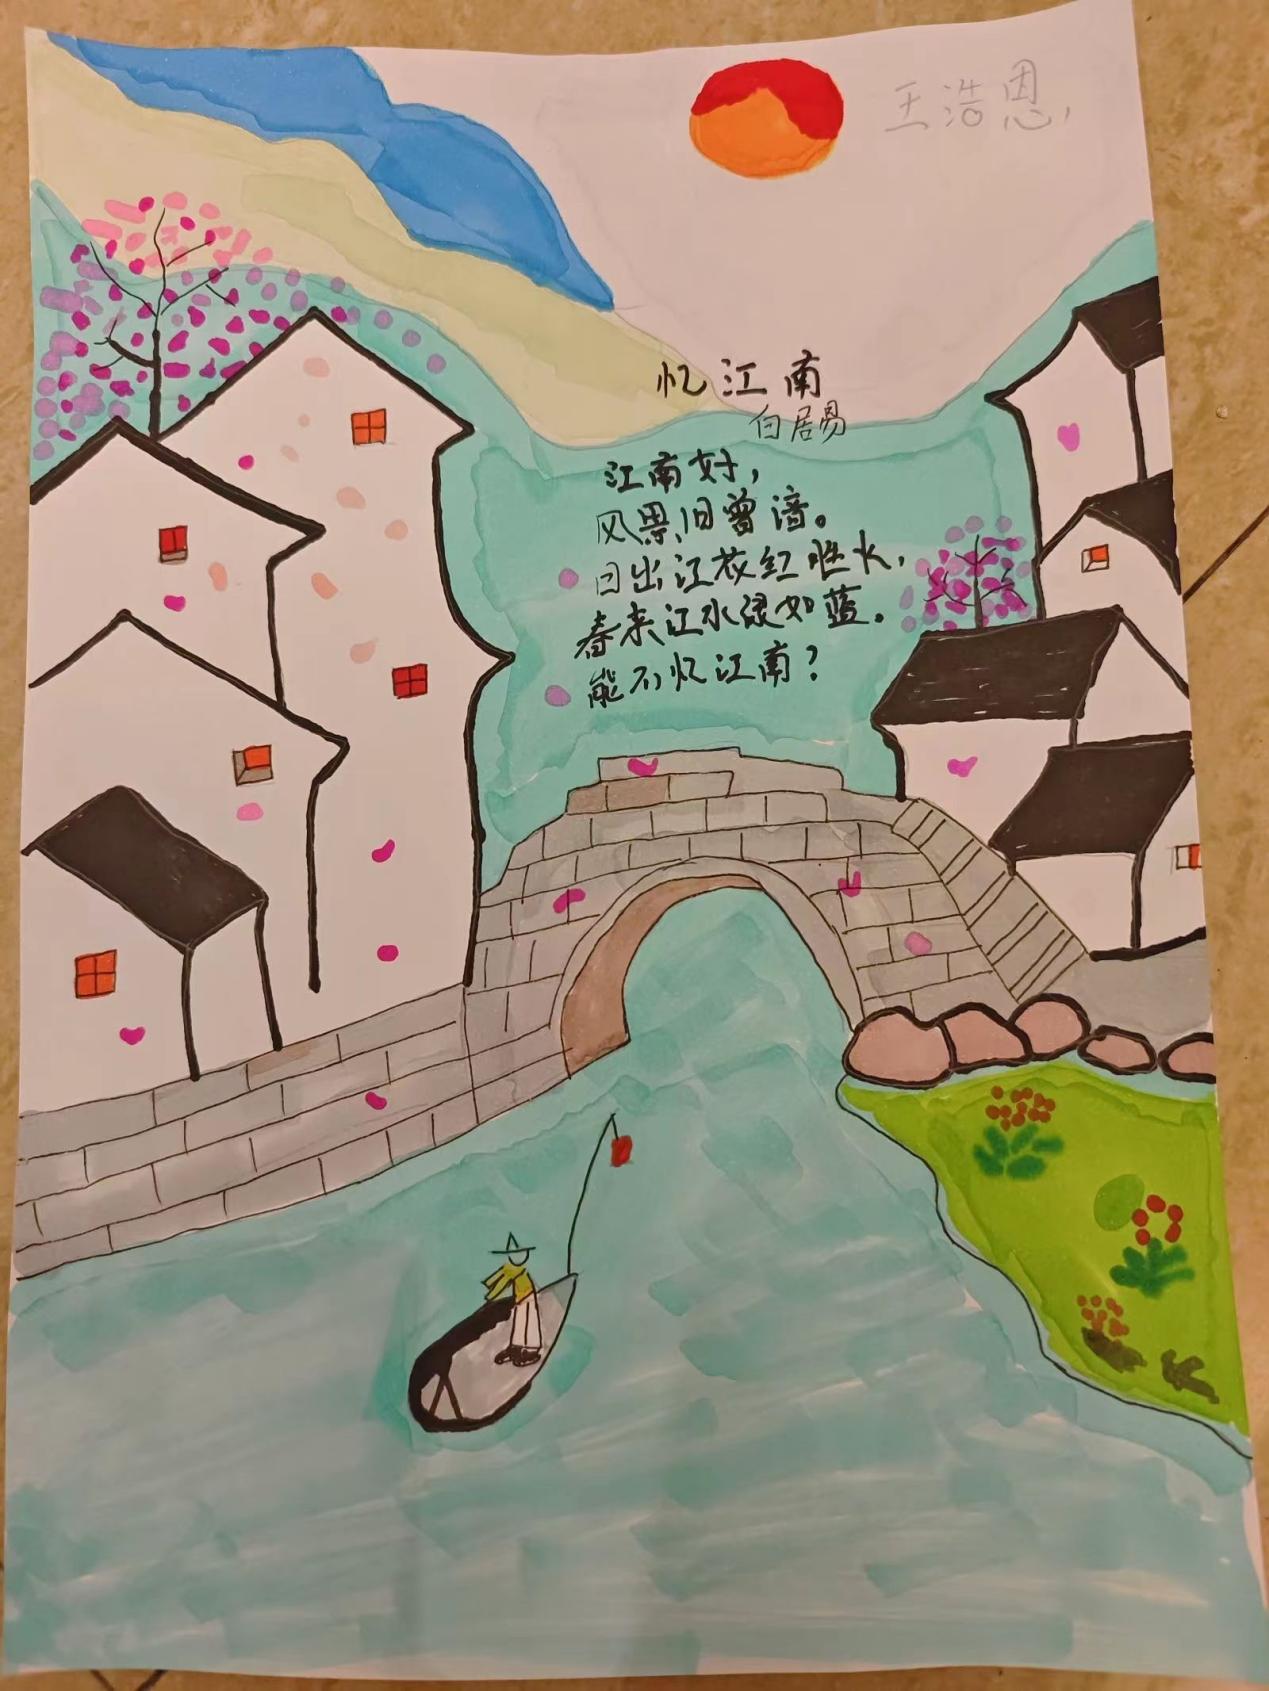 王浩恩
忆江南
白居易
江南好，
风景旧曾谙。
日出江花红胜火，
春来江水绿如蓝。
能不忆江南？